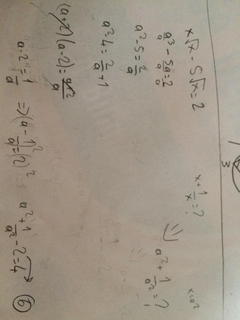 x√x - 5√x = 2
a³/a - 5a/a = 2/a
a² - 5 = 2/a
a² - 4 = 2/a + 1
(a+2)(a-2) = a+2/a
a - 2 = 1/a ⇒ (a - 1/a)² = (2)²
a² + 1/a² - 2 = 4
6
x + 1/x = ?
a² + 1/a² = ?
x = a²
3